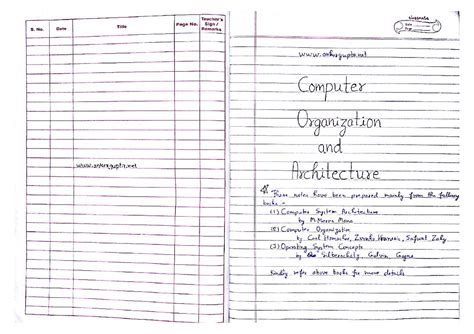 S. No.
Date
Title
Page No.
Teacher's
Sign /
Remarks
www.ankurgupta.net
classmate
Date
Page
www.ankurgupta.net
Computer
Organization
and
Architecture
These notes have been prepared mainly from the following
books -
(1) Computer System Architecture
by M. Morris Mano
(2) Computer Organization
by Carl Hamacher, Zvonko Vranesic, Safwat Zaky
(3) Operating System Concepts
by Silberschatz, Galvin, Gagne
Kindly refer above books for more details